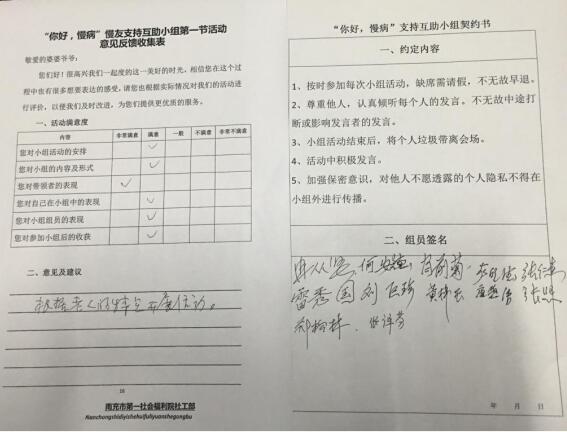 “你好，慢病”慢友支持互助小组第一节活动
意见反馈收集表
敬爱的婆婆爷爷：
您们好！很高兴我们一起度的这一美好的时光，相信您在这个过
程中也有很多想要表达的感受，请您也根据实际情况对我们的活动进
行评价，以便我们及时改进，为您们提供更优质的服务。
一、活动满意度
内容 非常满意 满意 一般 不满意 非常不满意
您对小组活动的安排 ✓
您对小组的内容及形式 ✓
您对带领者的表现 ✓
您对自己在小组中的表现 ✓
您对小组组员的表现 ✓
您对参加小组后的收获 ✓
二、意见及建议
根据老人的特点开展活动。
16
南充市第一社会福利院社工部
Nanchongshidiyishehuifuliyuanshegongbu
“你好，慢病”支持互助小组契约书
一、约定内容
1、按时参加每次小组活动，缺席需请假，不无故早退。
2、尊重他人，认真倾听每个人的发言。不无故中途打
断或影响发言者的发言。
3、小组活动结束后，将个人垃圾带离会场。
4、活动中积极发言。
5、加强保密意识，对他人不愿透露的个人隐私不得在
小组外进行传播。
二、组员签名
雷秀国
年 月 日